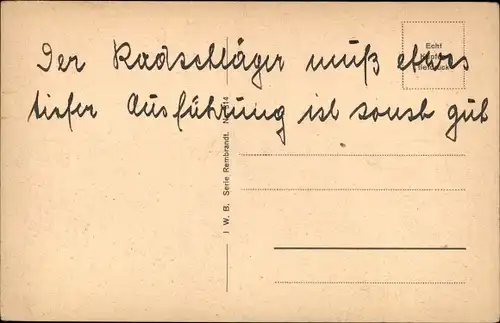 Der Radschläger muß etwas
tiefer Ausführung ist sonst gut
Echt
I W. B. Serie Rembrandt.